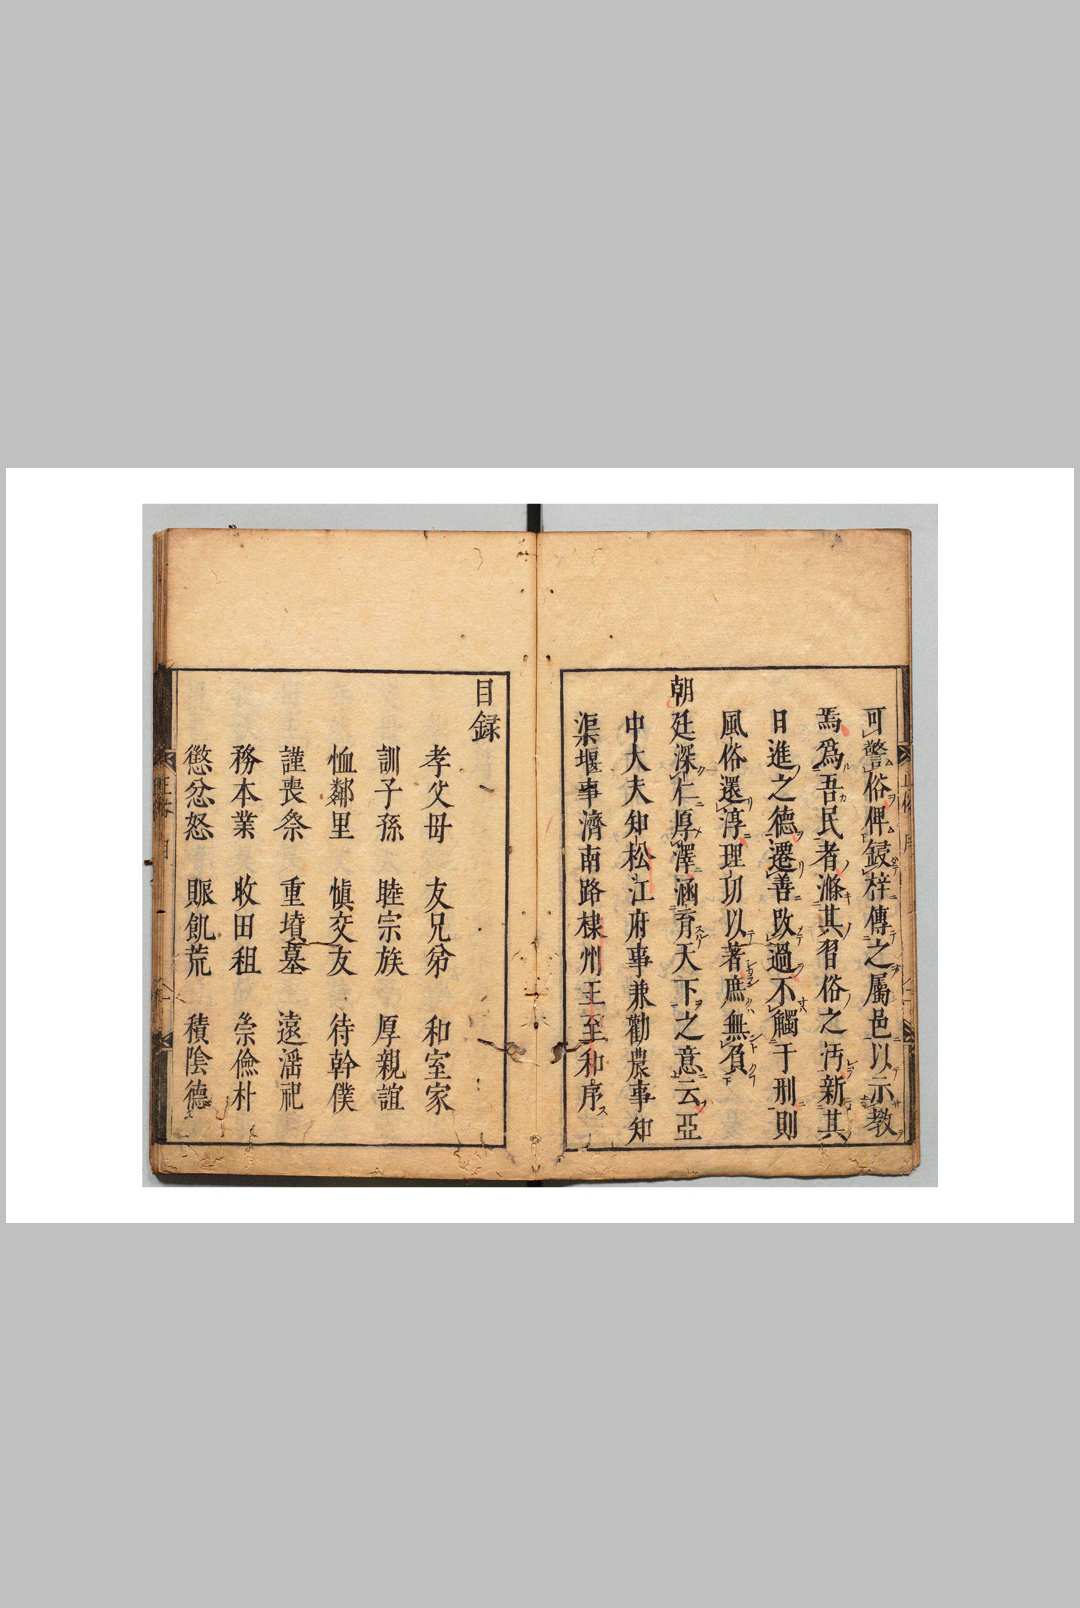 可警俗俾鋟梓傳之屬邑以示教
焉爲吾民者滌其習俗之汚新其
日進之德遷善改過不觸于刑則
風俗還淳理切以著庶無負
朝廷深仁厚澤涵育天下之意云亞
中大夫知松江府事兼勸農事知
渠堰事濟南路棣州王至和序
目録
孝父母 友兄弟 和室家
訓子孫 睦宗族 厚親誼
恤鄰里 愼交友 待幹僕
謹喪祭 重墳墓 遠滛祀
務本業 收田租 崇儉朴
懲忿怒 賑飢荒 積陰德